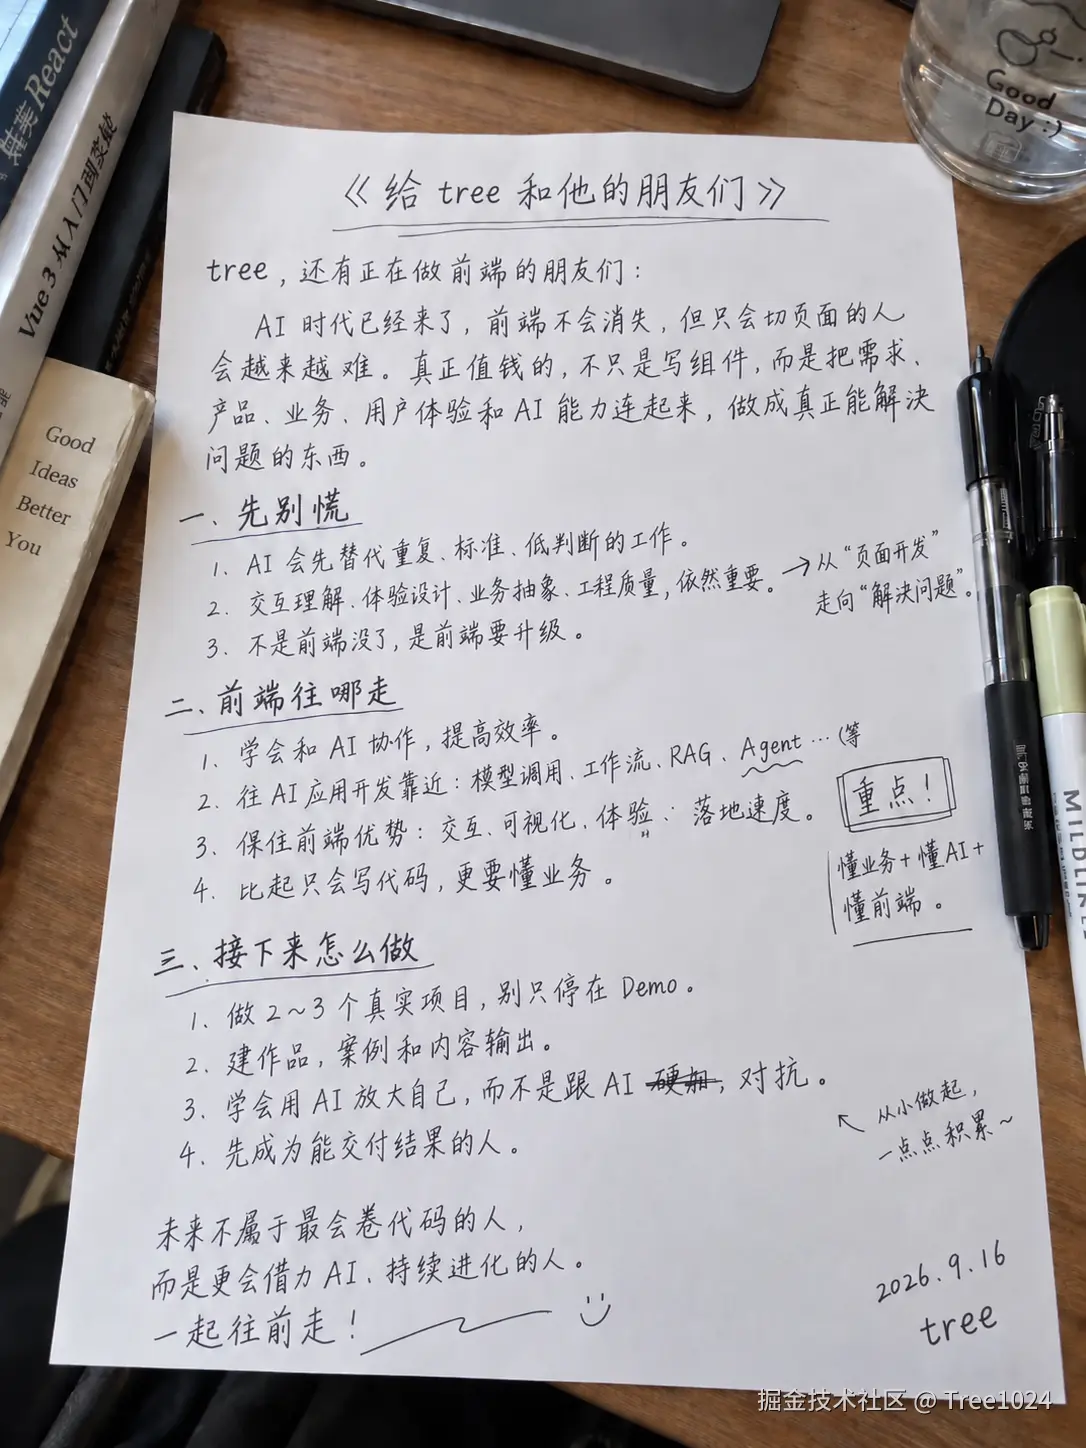 《给 tree 和他的朋友们》
tree，还有正在做前端的朋友们：
AI 时代已经来了，前端不会消失，但只会切页面的人
会越来越难。真正值钱的，不只是写组件，而是把需求、
产品、业务、用户体验和 AI 能力连起来，做成真正能解决
问题的东西。
一、先别慌
1. AI 会先替代重复、标准、低判断的工作。
2. 交互理解、体验设计、业务抽象、工程质量，依然重要。
→从“页面开发”
走向“解决问题”。
3. 不是前端没了，是前端要升级。
二、前端往哪走
1. 学会和 AI 协作，提高效率。
2. 往 AI 应用开发靠近：模型调用、工作流、RAG、Agent…（等
3. 保住前端优势：交互、可视化、体验、落地速度。
4. 比起只会写代码，更要懂业务。
重点！
懂业务+懂AI+
懂前端。
三、接下来怎么做
1. 做 2~3 个真实项目，别只停在 Demo。
2. 建作品，案例和内容输出。
3. 学会用 AI 放大自己，而不是跟 AI 对抗。
4. 先成为能交付结果的人。
↖ 从小做起，
一点点积累~
未来不属于最会卷代码的人，
而是更会借力 AI、持续进化的人。
一起往前走！
2026.9.16
tree
React
Vue 3 从入门到
Good
Ideas
Better
You
Good
Day :)
MILDLINE
掘金技术社区 @ Tree1024